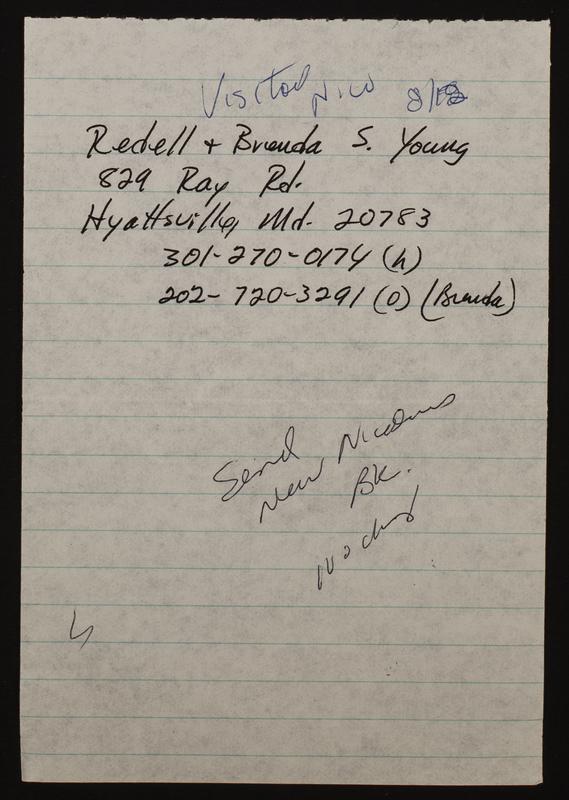 Visited Nico 8/18
Redell + Brenda S. Young
829 Ray Rd.
Hyattsville, Md. 20783
301-270-0174 (h)
202-720-3291 (O) (Brenda)
Send
New Nicodemus
Bk.
no chg